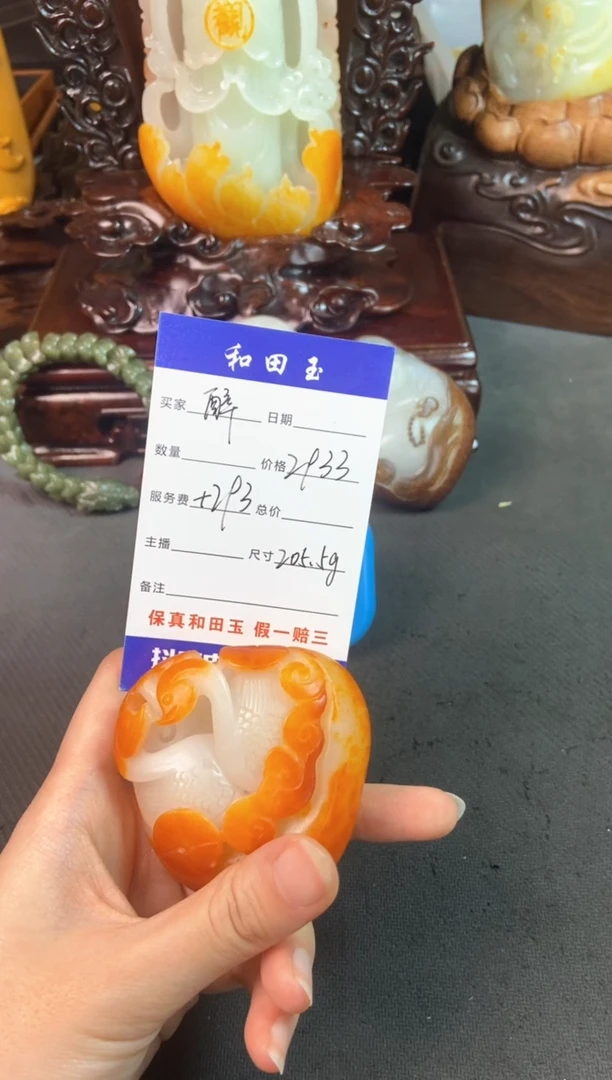 和田玉
买家 醉 日期
数量 价格 2933
服务费 +293 总价
主播 尺寸 205.5g
备注
保真和田玉 假一赔三